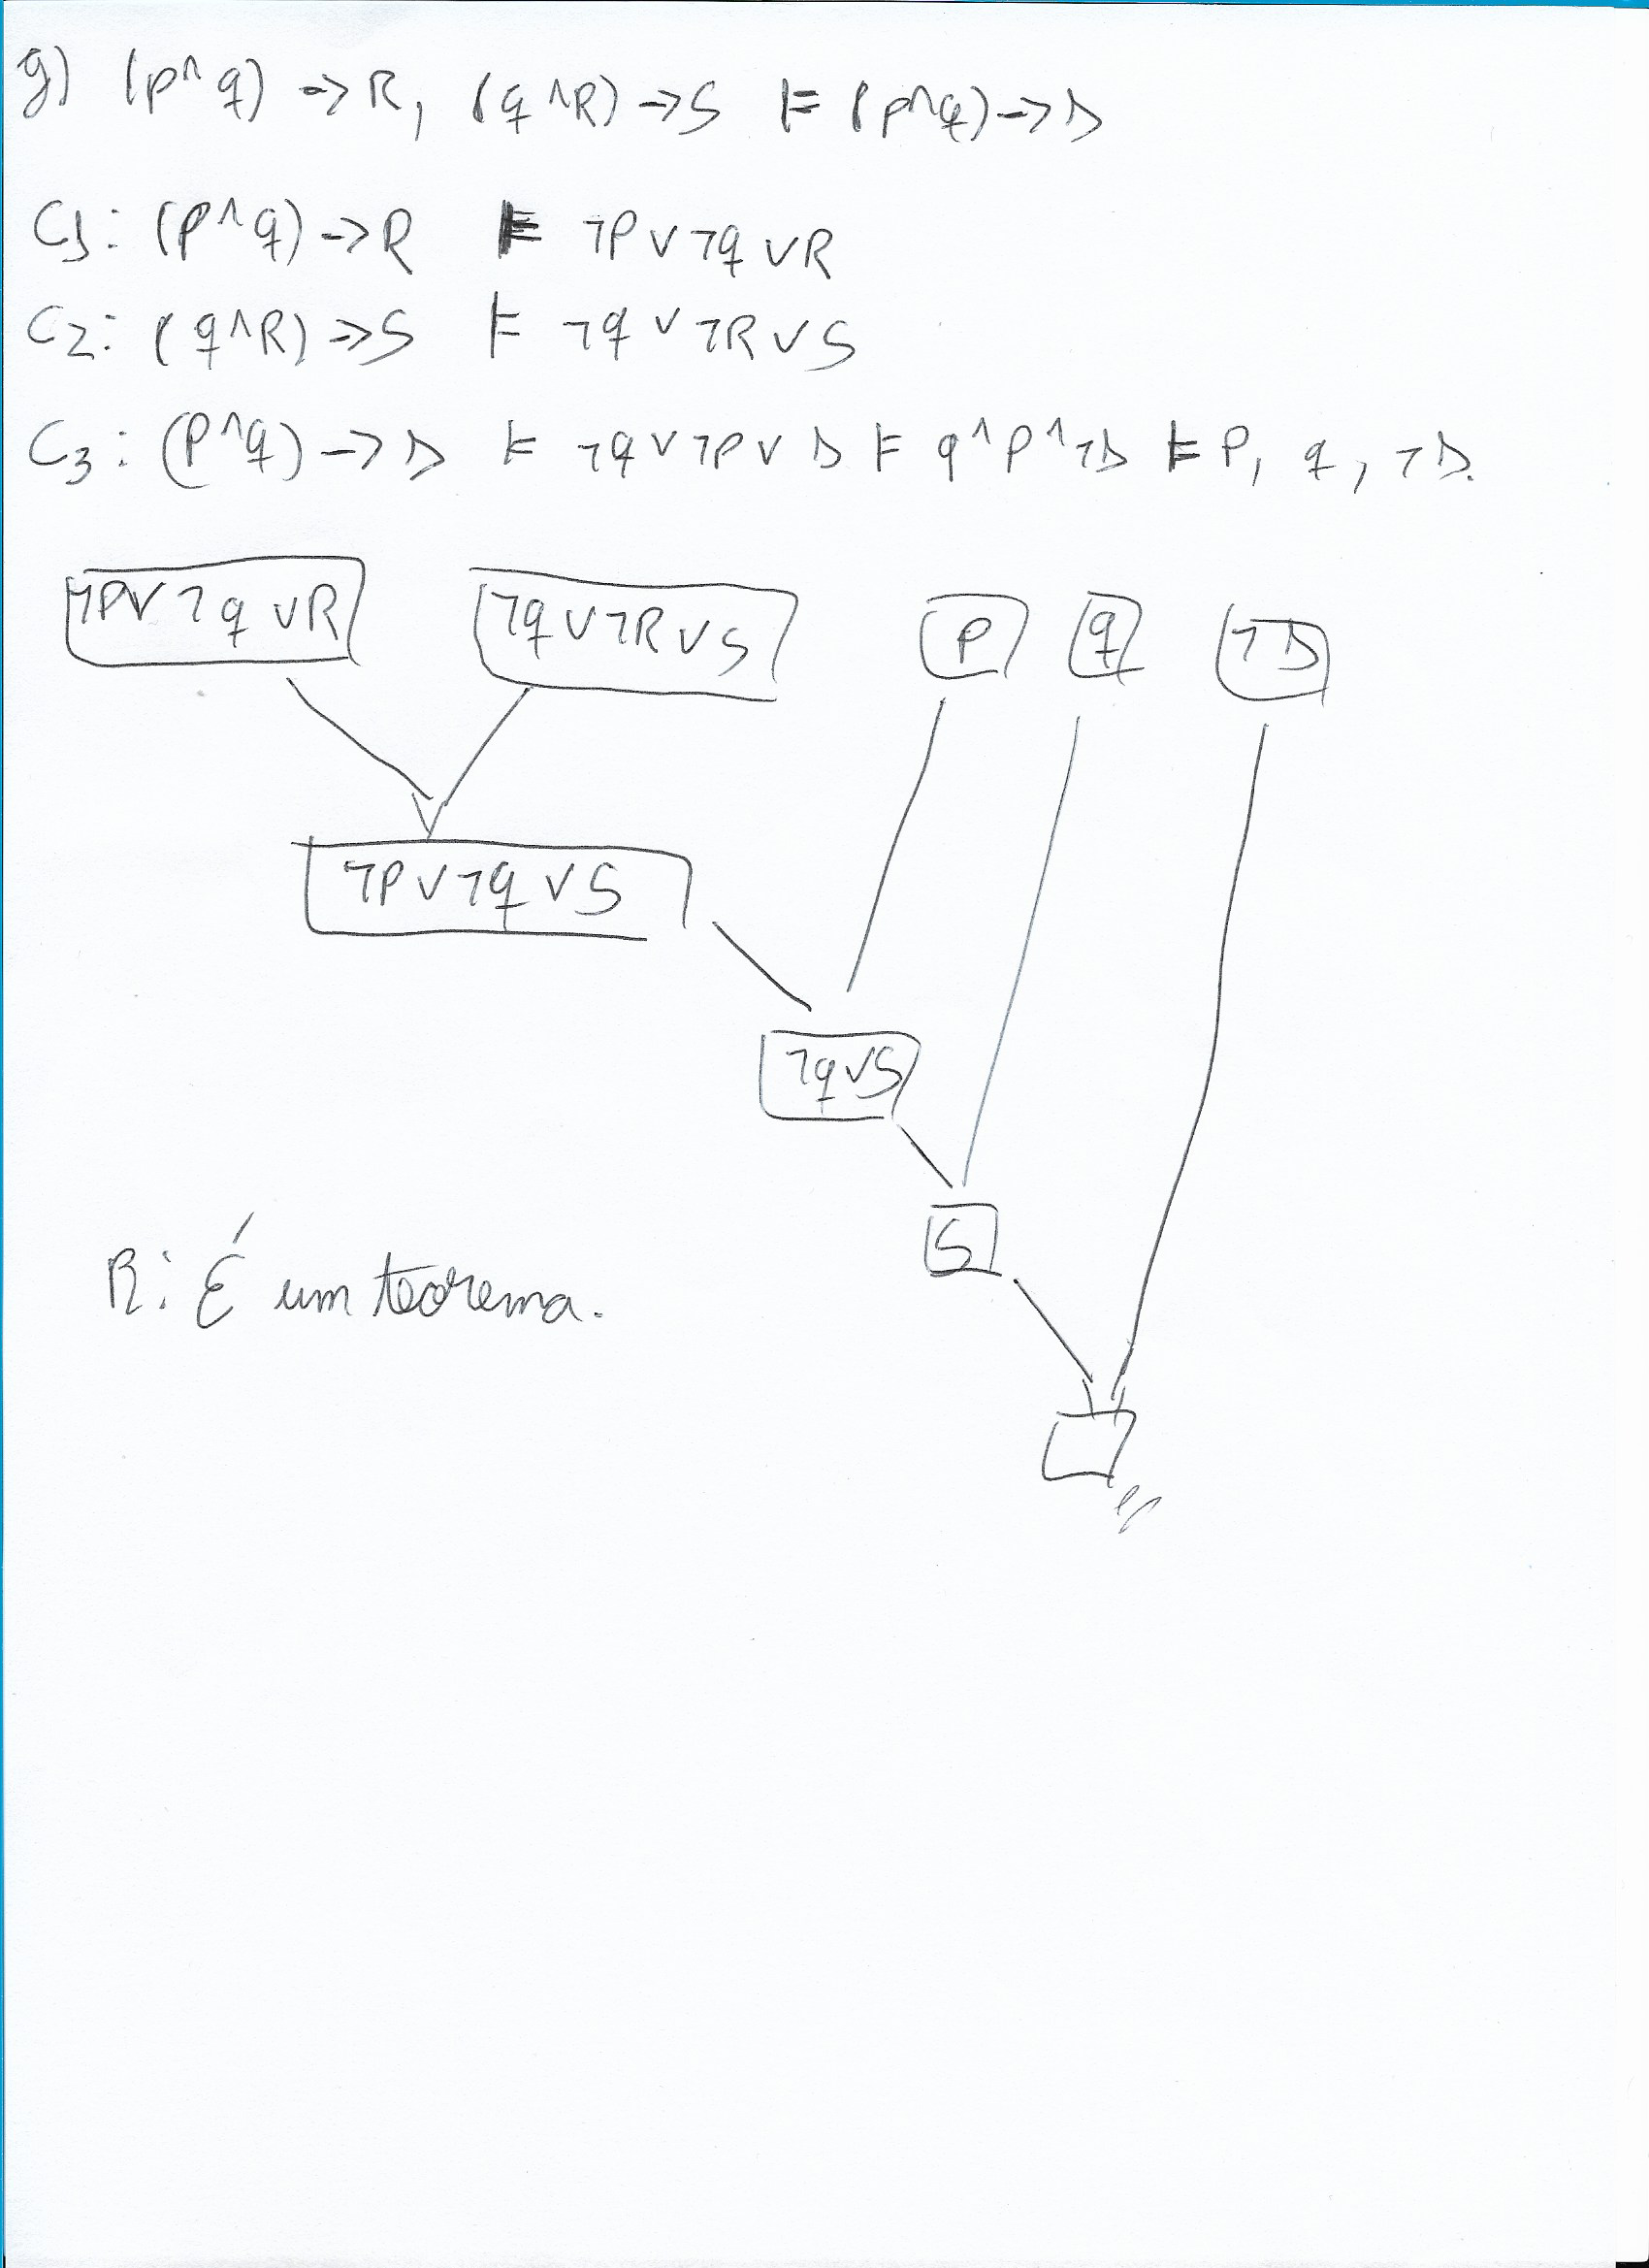 g) (p^q) -> R, (q^R) -> S ⊨ (p^q) -> s
C1: (P^q) -> R ⊨ ¬P v ¬q v R
C2: (q^R) -> S ⊨ ¬q v ¬R v S
C3: (P^q) -> s ⊨ ¬q v ¬P v s ⊨ q^P^¬s ⊨ P, q, ¬s.
¬P v ¬q v R ¬q v ¬R v S P q ¬s
¬P v ¬q v S
¬q v S
S
R: É um teorema.